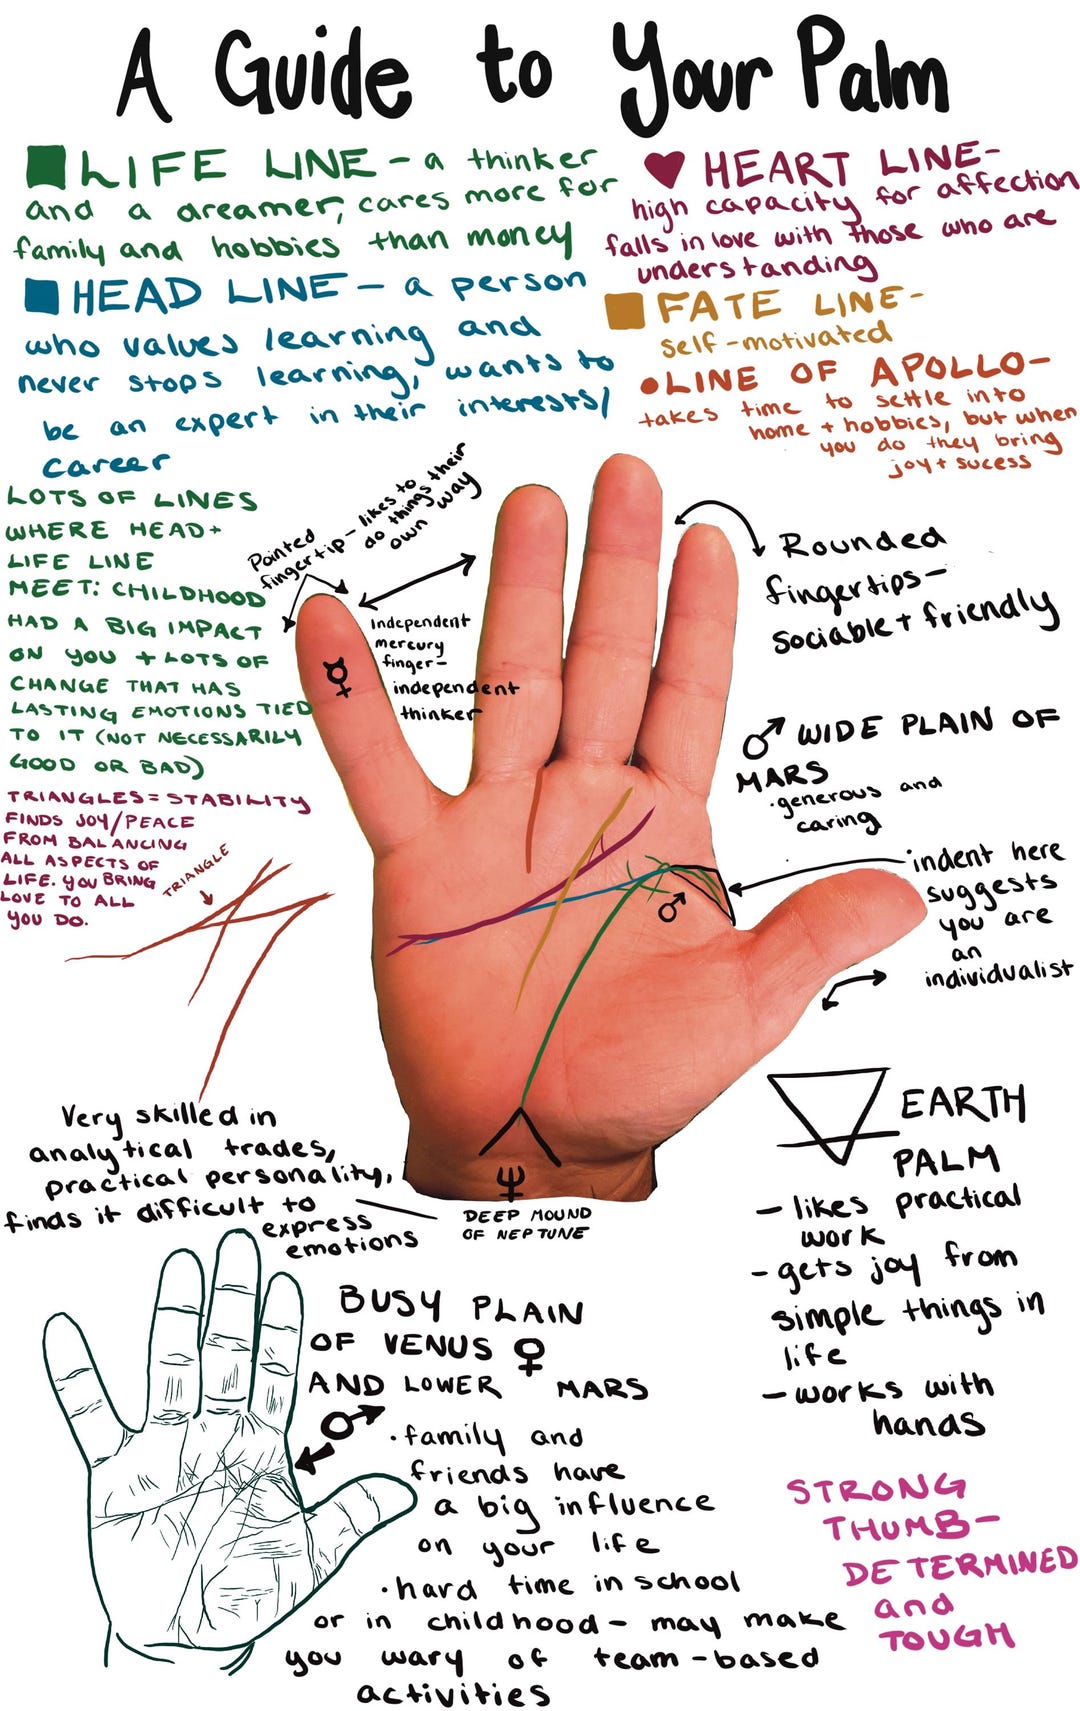 A Guide to Your Palm
LIFE LINE - a thinker
and a dreamer, cares more for
family and hobbies than money
HEAD LINE - a person
who values learning and
never stops learning, wants to
be an expert in their interests/
career
HEART LINE -
high capacity for affection
falls in love with those who are
understanding
FATE LINE -
self-motivated
LINE OF APOLLO -
takes time to settle into
home + hobbies, but when
you do they bring
joy + sucess
LOTS OF LINES
WHERE HEAD +
LIFE LINE
MEET: CHILDHOOD
HAD A BIG IMPACT
ON YOU + LOTS OF
CHANGE THAT HAS
LASTING EMOTIONS TIED
TO IT (NOT NECESSARILY
GOOD OR BAD)
Pointed
fingertip - likes to
do things their
own way
Independent
mercury
finger -
independent
thinker
☿
Rounded
fingertips -
sociable + friendly
♂ WIDE PLAIN OF
MARS
·generous and
caring
TRIANGLES = STABILITY
FINDS JOY/PEACE
FROM BALANCING
ALL ASPECTS OF
LIFE. YOU BRING
LOVE TO ALL
YOU DO.
TRIANGLE
♂
indent here
suggests
you are
an
individualist
Very skilled in
analytical trades,
practical personality,
finds it difficult to
express
emotions
♆
DEEP MOUND
OF NEPTUNE
EARTH
PALM
- likes practical
work
- gets joy from
simple things in
life
- works with
hands
BUSY PLAIN
OF VENUS ♀
AND LOWER MARS
♂
·family and
friends have
a big influence
on your life
·hard time in school
or in childhood - may make
you wary of team-based
activities
STRONG
THUMB -
DETERMINED
and
TOUGH